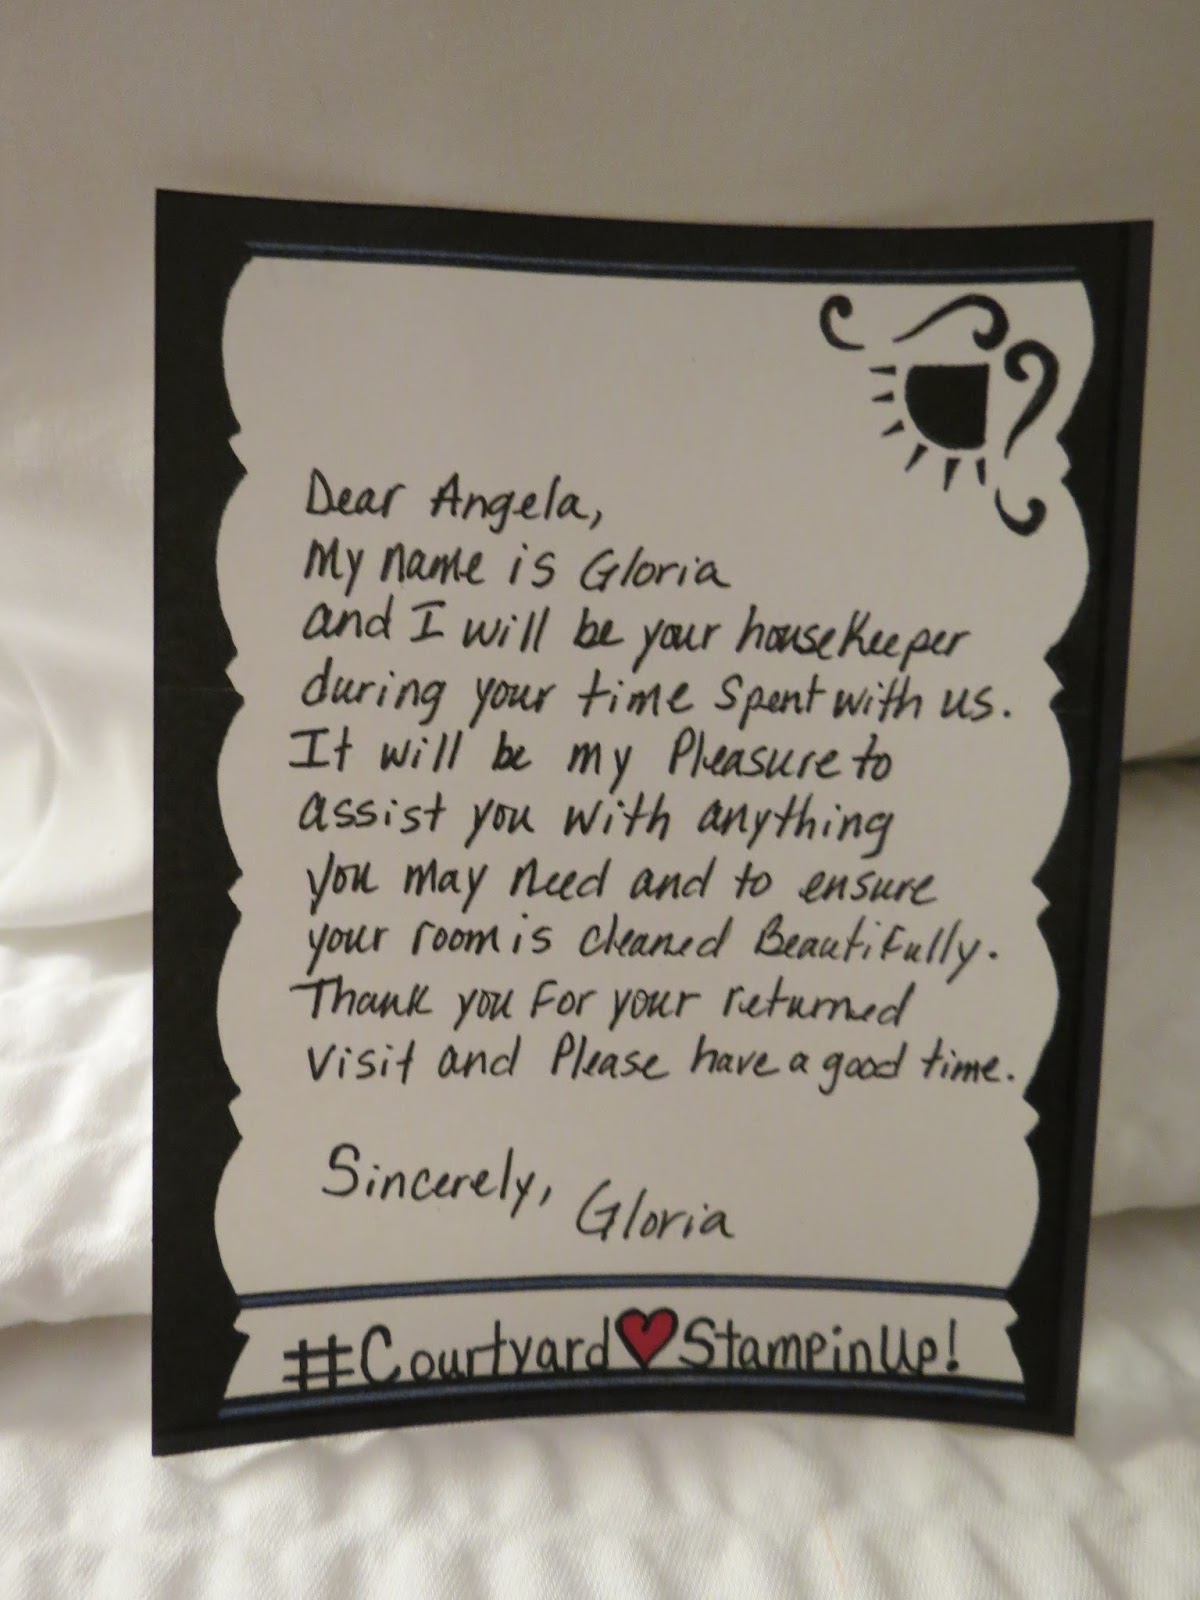 Dear Angela,
My name is Gloria
and I will be your houseKeeper
during your time Spent with us.
It will be my Pleasure to
assist you with anything
you may need and to ensure
your room is cleaned Beautifully.
Thank you For your returned
visit and Please have a good time.
Sincerely, Gloria
#Courtyard❤StampinUp!